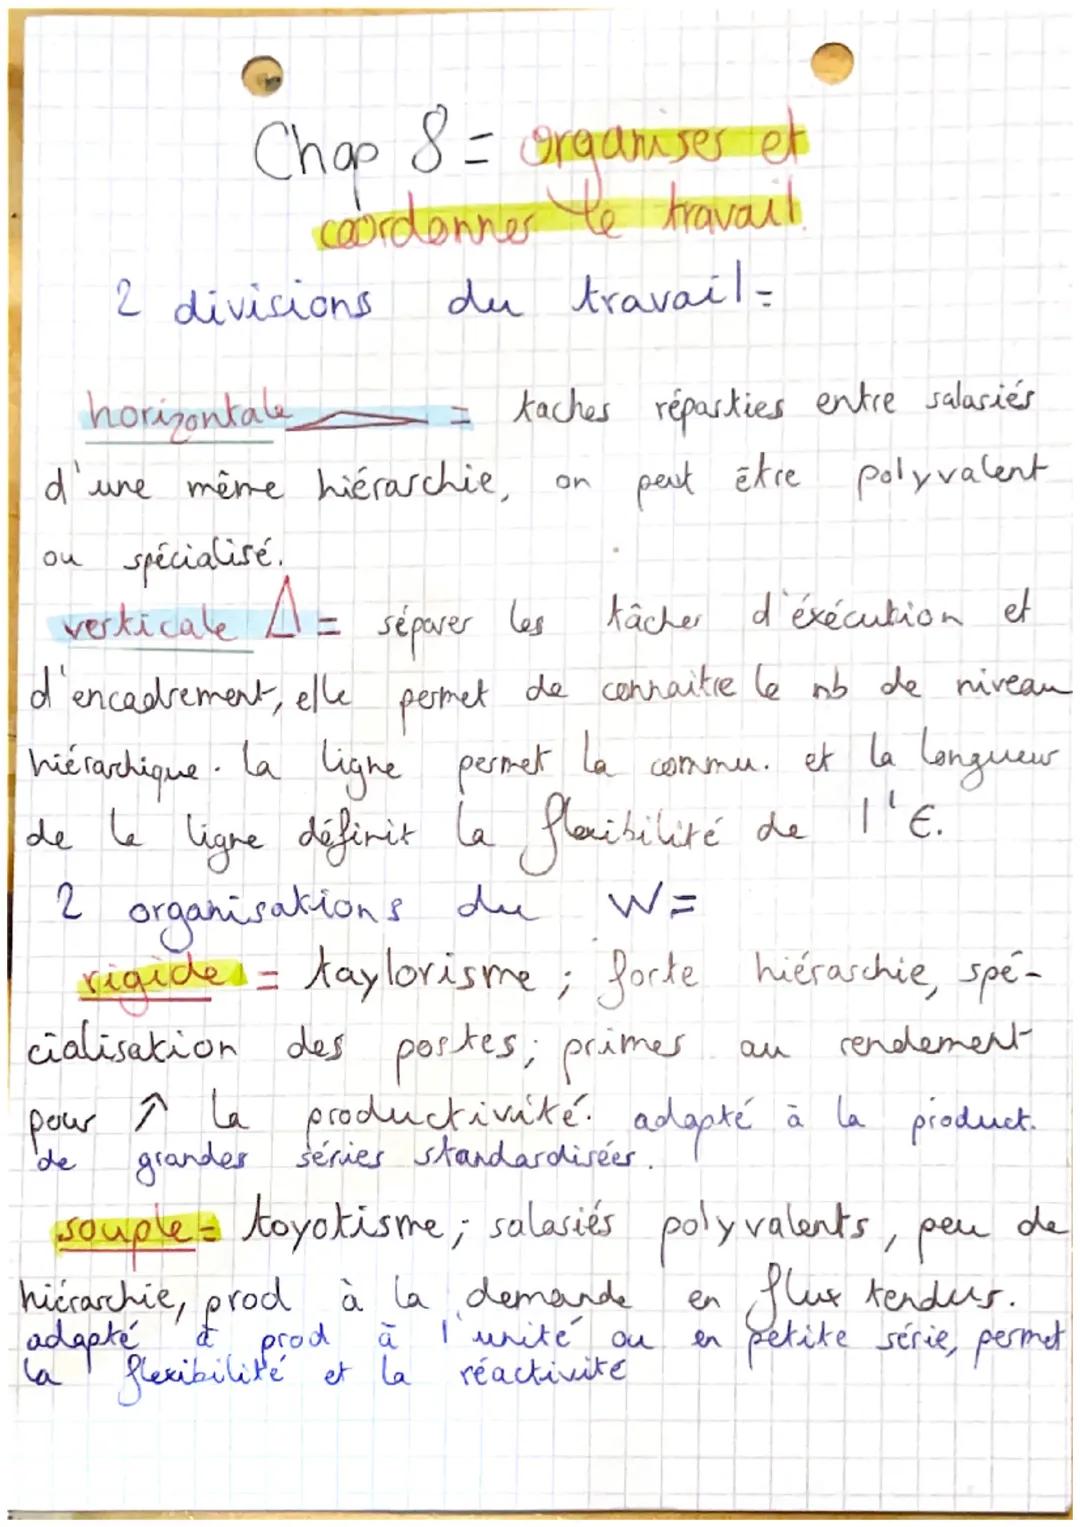 Chap 8 = organiser et
coordonner le travail.
2 divisions du travail =
horizontale = taches réparties entre salariés
d'une même hiérarchie, on peut être polyvalent
ou spécialisé.
verticale = séparer les tâches d'éxécution et
d'encadrement, elle permet de connaitre le nb de niveau
hiérarchique. la ligne permet la commu. et la longueur
de la ligne définit la flexibilité de l'€.
2 organisations du W =
rigide = taylorisme ; forte hiérarchie, spé-
cialisation des postes ; primes au rendement
pour ↗ la productivité. adapté à la product.
de grandes séries standardisées.
souple = toyotisme ; salariés polyvalents, peu de
hiérarchie, prod à la demande en flux tendus.
adapté à prod à l'unité ou en petite série, permet
la flexibilité et la réactivité